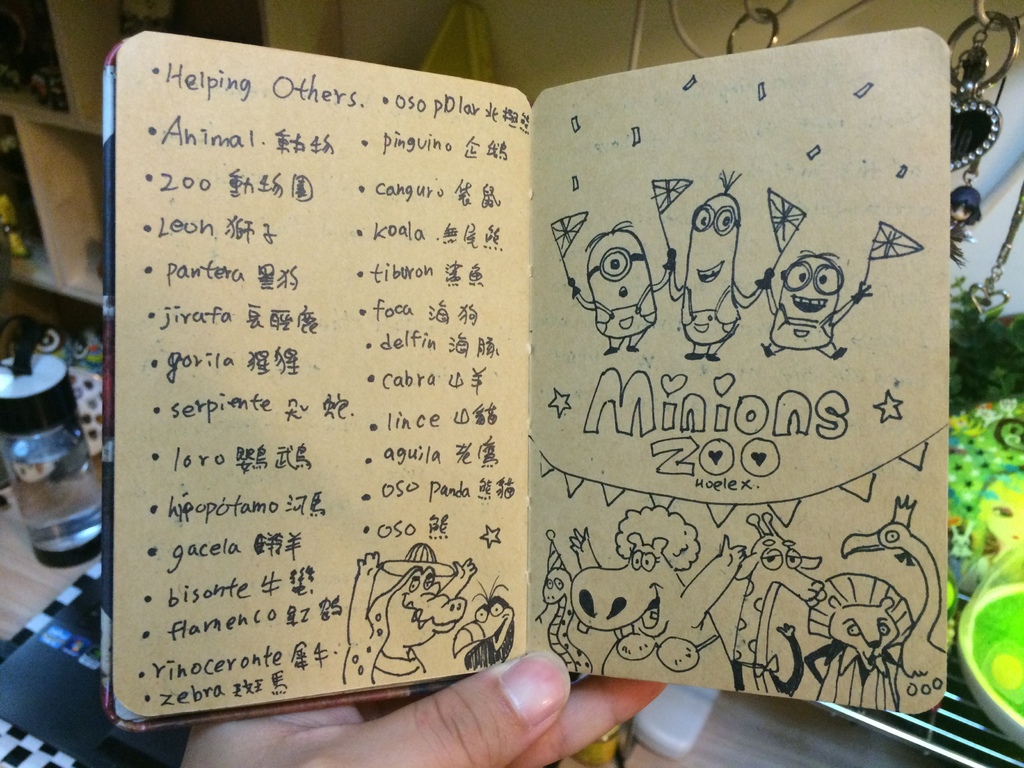 • Helping Others.
• Animal. 動物
• zoo 動物園
• Leon 獅子
• pantera 黑豹
• jirafa 長頸鹿
• gorila 猩猩
• serpiente 蛇
• loro 鸚鵡
• hipopótamo 河馬
• gacela 羊
• bisonte 牛
• flamenco 紅鶴
• rinoceronte 犀牛.
• zebra 斑馬
• oso polar 北極熊
• pinguino 企鵝
• canguro 袋鼠
• koala. 無尾熊
• tiburon 鯊魚
• foca 海狗
• delfin 海豚
• cabra 山羊
• lince 山貓
• aguila 老鷹
• oso panda 熊貓
• oso 熊
Minions
ZOO
Hoelex.